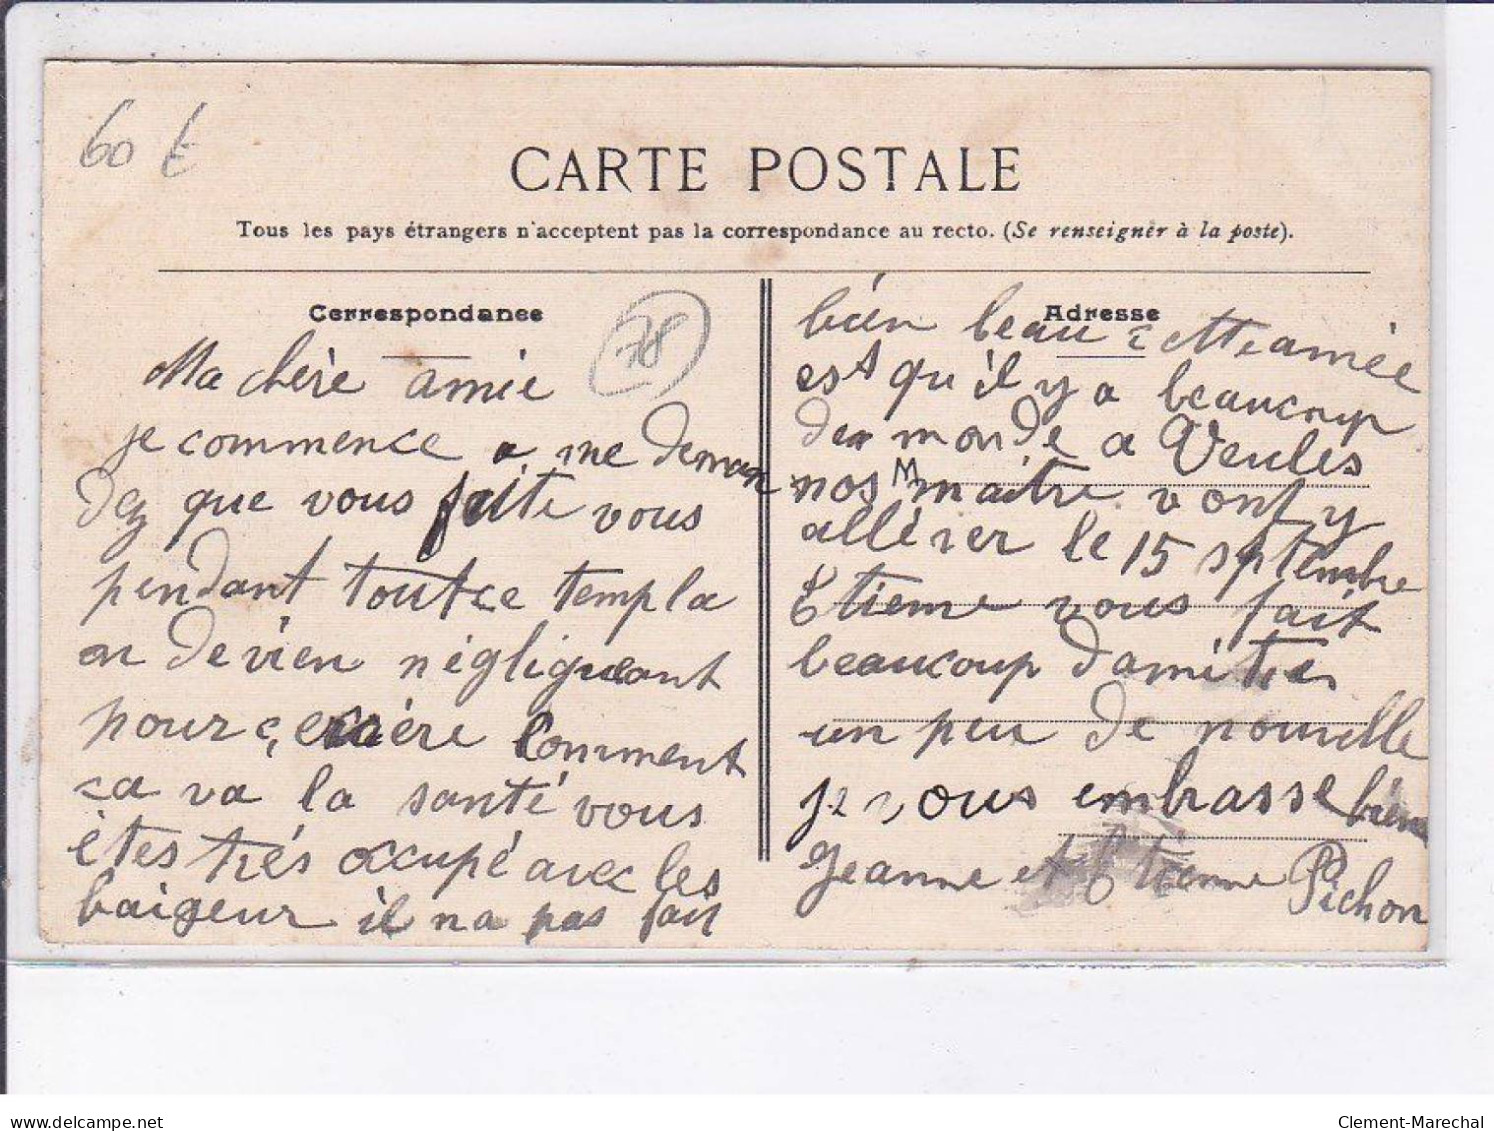 60 €
CARTE POSTALE
Tous les pays étrangers n'acceptent pas la correspondance au recto. (Se renseigner à la poste).
Correspondance
78
Ma chère amie
je commence a me deman
dez que vous faite vous
pendant toutce templa
on devien négligueant
pour ç, Comment
ca va la santé vous
êtes très occupé avec les
baigeur il na pas fait
Adresse
bien beau cette année
est qu'il y a beaucoup
de monde a Veules
nos M maitre vont y
allérer le 15 sptembre
Etienne vous fait
beaucoup d'amitier
un peu de nouvelle
je vous embrasse bien
Jeanne et Etienne Pichon
delcampe.net
Clement-Marechal